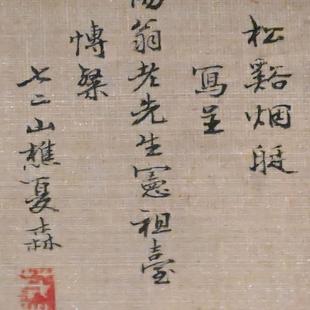 松谿烟艇
寫呈
翁老先生憲祖臺
博粲
七二山樵夏森